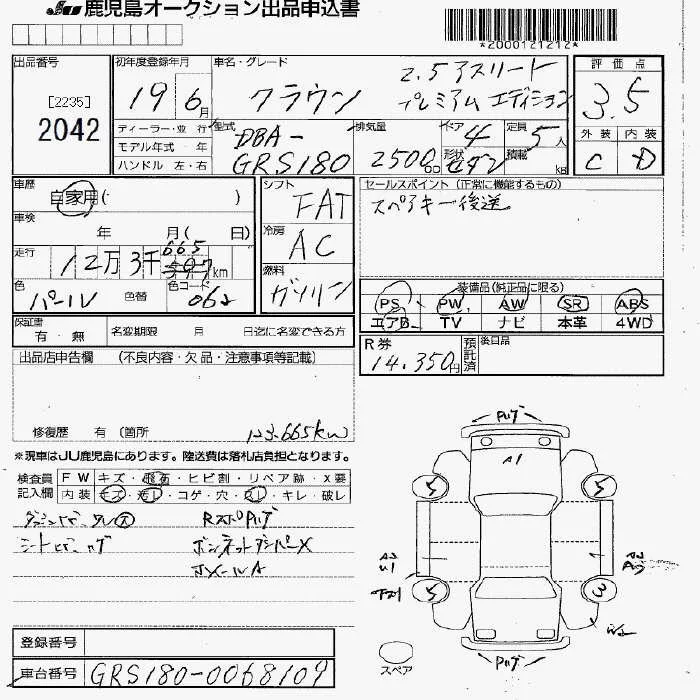 JU 鹿児島オークション出品申込書
*2000121212*
出品番号
[2235]
2042
初年度登録年月
19 6月
車名・グレード
クラウン
2.5アスリート
プレミアムエディション
評価点
3.5
外装 内装
C D
ディーラー・並行
モデル年式 年
ハンドル 左・右
型式
DBA-
GRS180
排気量
2500cc
ドア 4
定員 5人
形状 セダン
積載 kg
車歴
自家用( )
車検
年 月( 日)
走行
12万3千665km
色 パール 色替
色コード 062
シフト
FAT
冷房
AC
燃料
ガソリン
セールスポイント(正常に機能するもの)
スペアキー後送
装備品(純正品に限る)
PS PW AW SR ABS
エアB TV ナビ 本革 4WD
保証書
有・無
名変期限 月 日迄に名変できる方
R券
14,350円
預託済
後日品
出品店申告欄 (不良内容・欠品・注意事項等記載)
修復歴 有 (箇所
123.665km
※現車はJU鹿児島にあります。陸送費は落札店負担となります。
検査員記入欄
FW キズ・飛石・ヒビ割・リペア跡・X要
内装 キズ・汚レ・コゲ・穴・スレ・キレ・破レ
ボンネットダンパーX
A1
5 5
5 3
スペア
登録番号
車台番号 GRS180-0068109